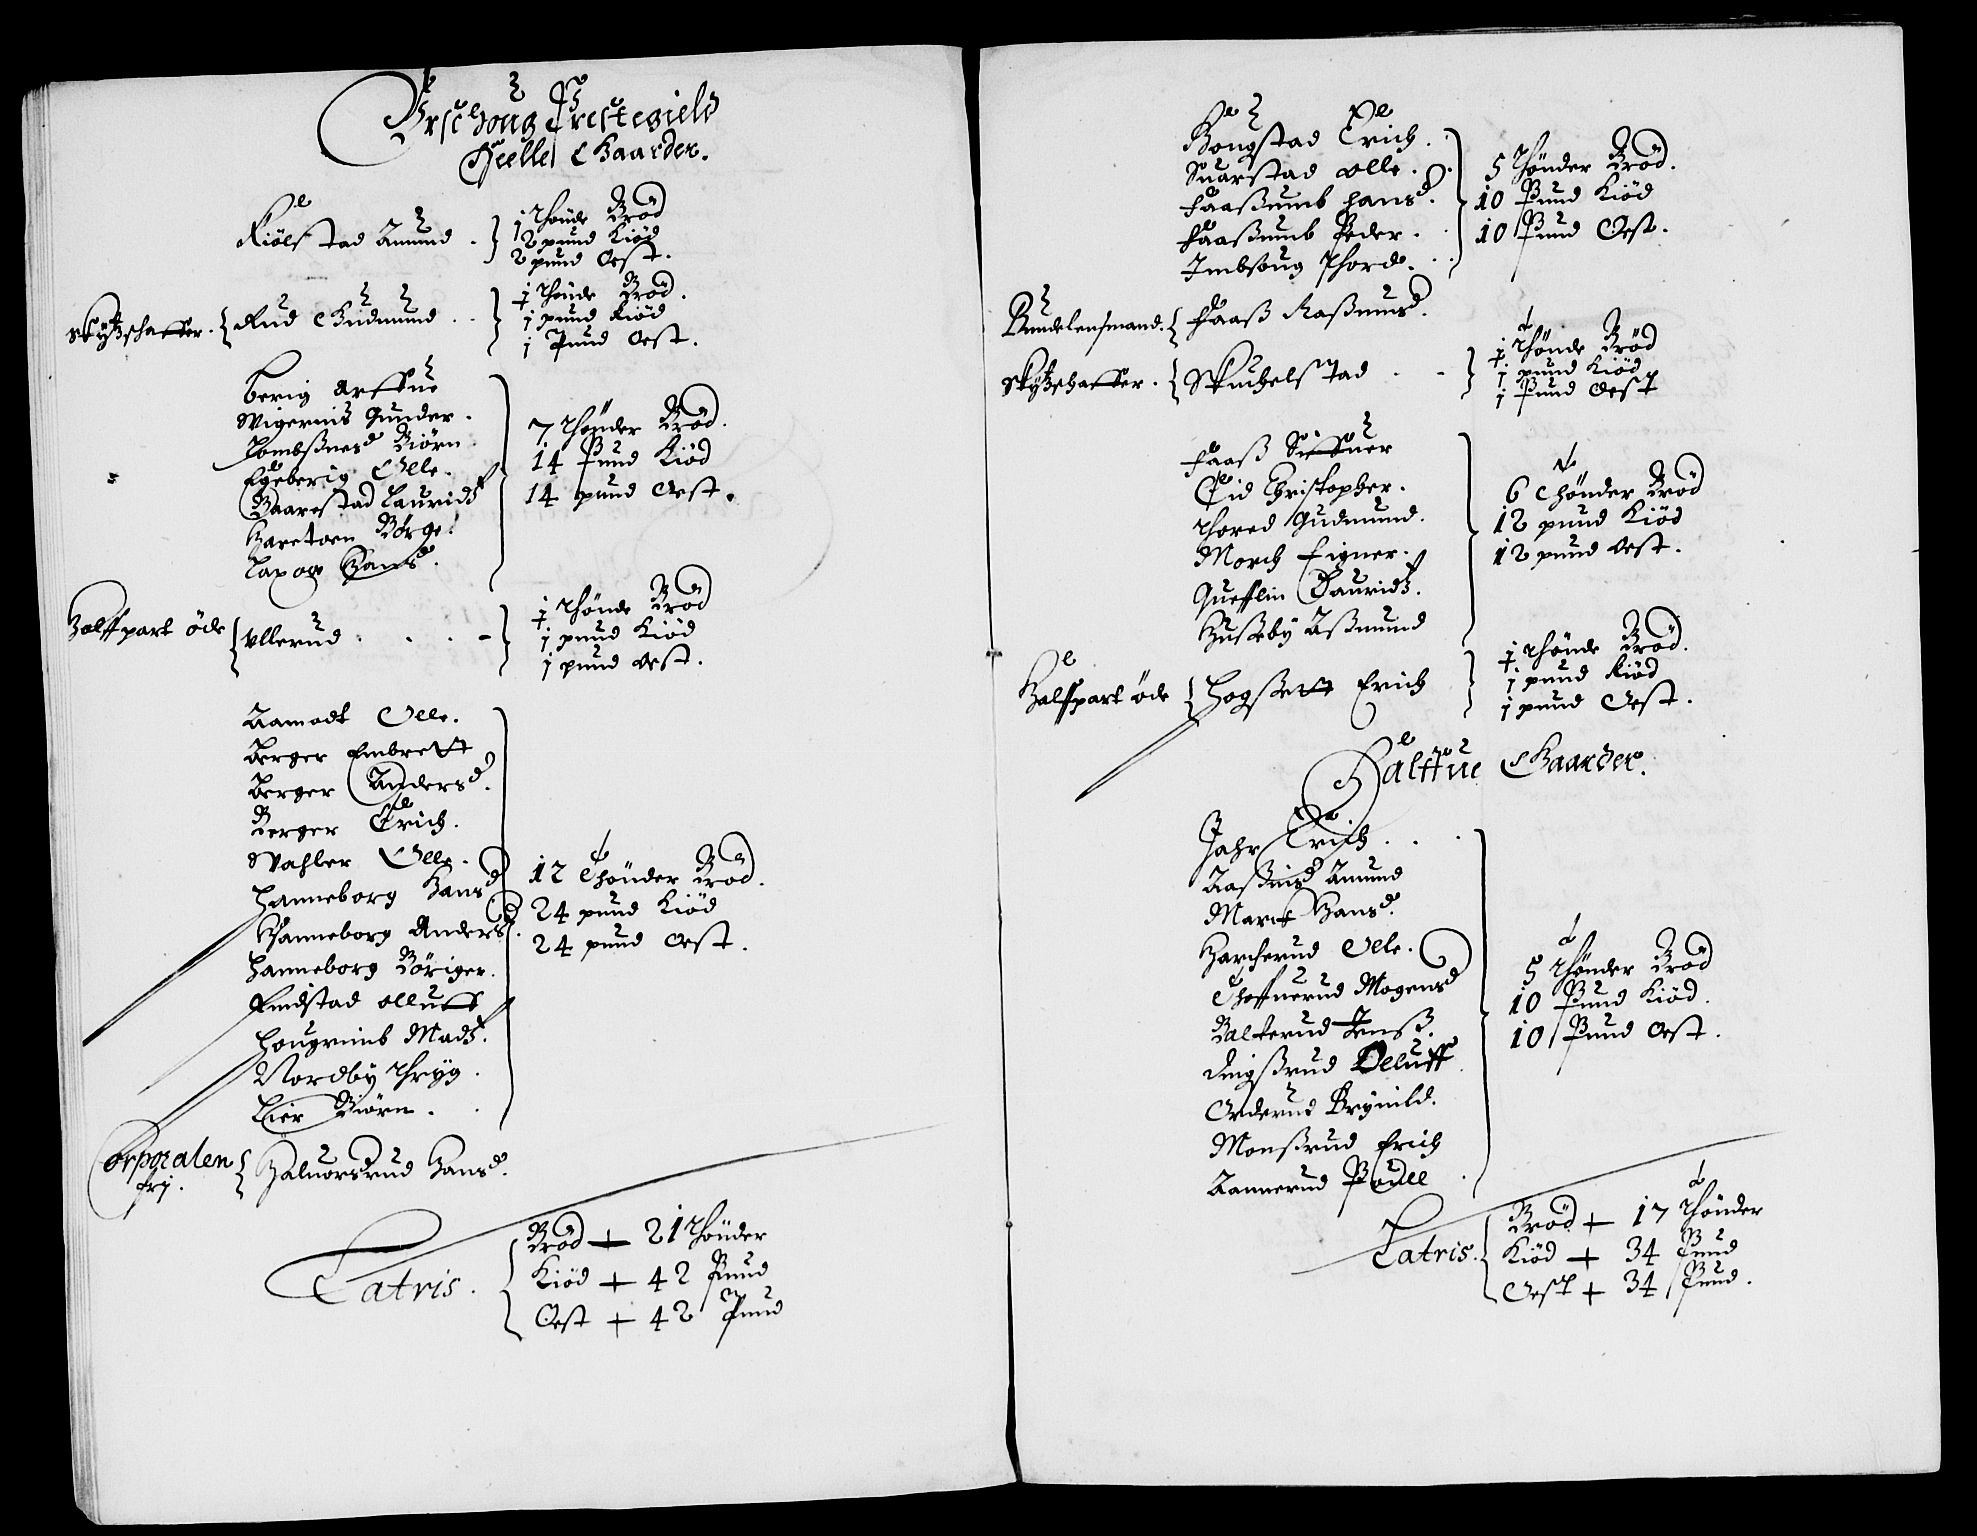 Urschoug Prestegield
Heelle Gaarder.
Kiölstad Amund .
1 thønde Brød
2 pund Kiød
2 pund Oest.
Skÿtzschaffer. Rud Gudmund . .
1 thønde Brød.
1 pund Kiød
1 Pund Oest.
Berig Arffue
Wigernis Gunder.
Tombßnes Biörn
Egeberig Olle.
Baarestad Lauridtz
Haretoen Börge.
Hans.
7 thønder Brød.
14 Pund Kiød
14 pund Oest.
Halffpart öde Ullerud . . . -
1 thønde Brød
1 pund Kiød
1 pund Oest.
Aamodt Olle.
Berger Embrett
Berger Anders.
Berger Erich.
Wahler Olle.
Hanneborg Hans
Hanneborg Anders.
Hanneborg Böriger.
Findstad Olluff
Hougrimb Madtz.
Nordby Thryg .
Lier Biörn . .
12 Thønder Brød.
24 pund Kiød
24 pund Oest.
Corporalen frj. Haluorsrud Hans.
Latris.
Brød + 21 thønder
Kiød + 42 Pund
Oest + 42 Pund
Bongstad Erich .
Suarstad Olle . .
Haaßumb Hans.
Haaßumb Peder. .
Imbsoug Thord. . .
5 Thønder Brød.
10 Pund Kiød
10 Pund Oest.
Bundelensmand. Haaß Raßmus.
Skÿtzschaffer. Skuchelstad . -
1 thønde Brød
1 pund Kiød
1 Pund Oest
Haaß Siffuer
Eid Christopher.
Thored Gudmund.
Morch Eigner.
Quefflin Lauridtz.
Hußebÿ Aßmund
6 thønder Brød
12 pund Kiød
12 pund Oest.
Halffpart öde Hogßett Erich
1 thønde Brød.
1 pund Kiød
1 pund Oest.
Halffue Gaarder.
Jahr Erich . . .
Aaßnis Amund
Mark Hans.
Harcherud Olle.
Thoffnerud Mogens
Balterud Jenß.
Dingßrud Olluff
Orderud Brynild.
Monßrud Erich
Aannerud Pouell .
5 thønder Brød
10 Pund Kiød.
10 Pund Oest.
Latris.
Brød + 17 thønder
Kiød + 34 Pund
Oest + 34 Pund.